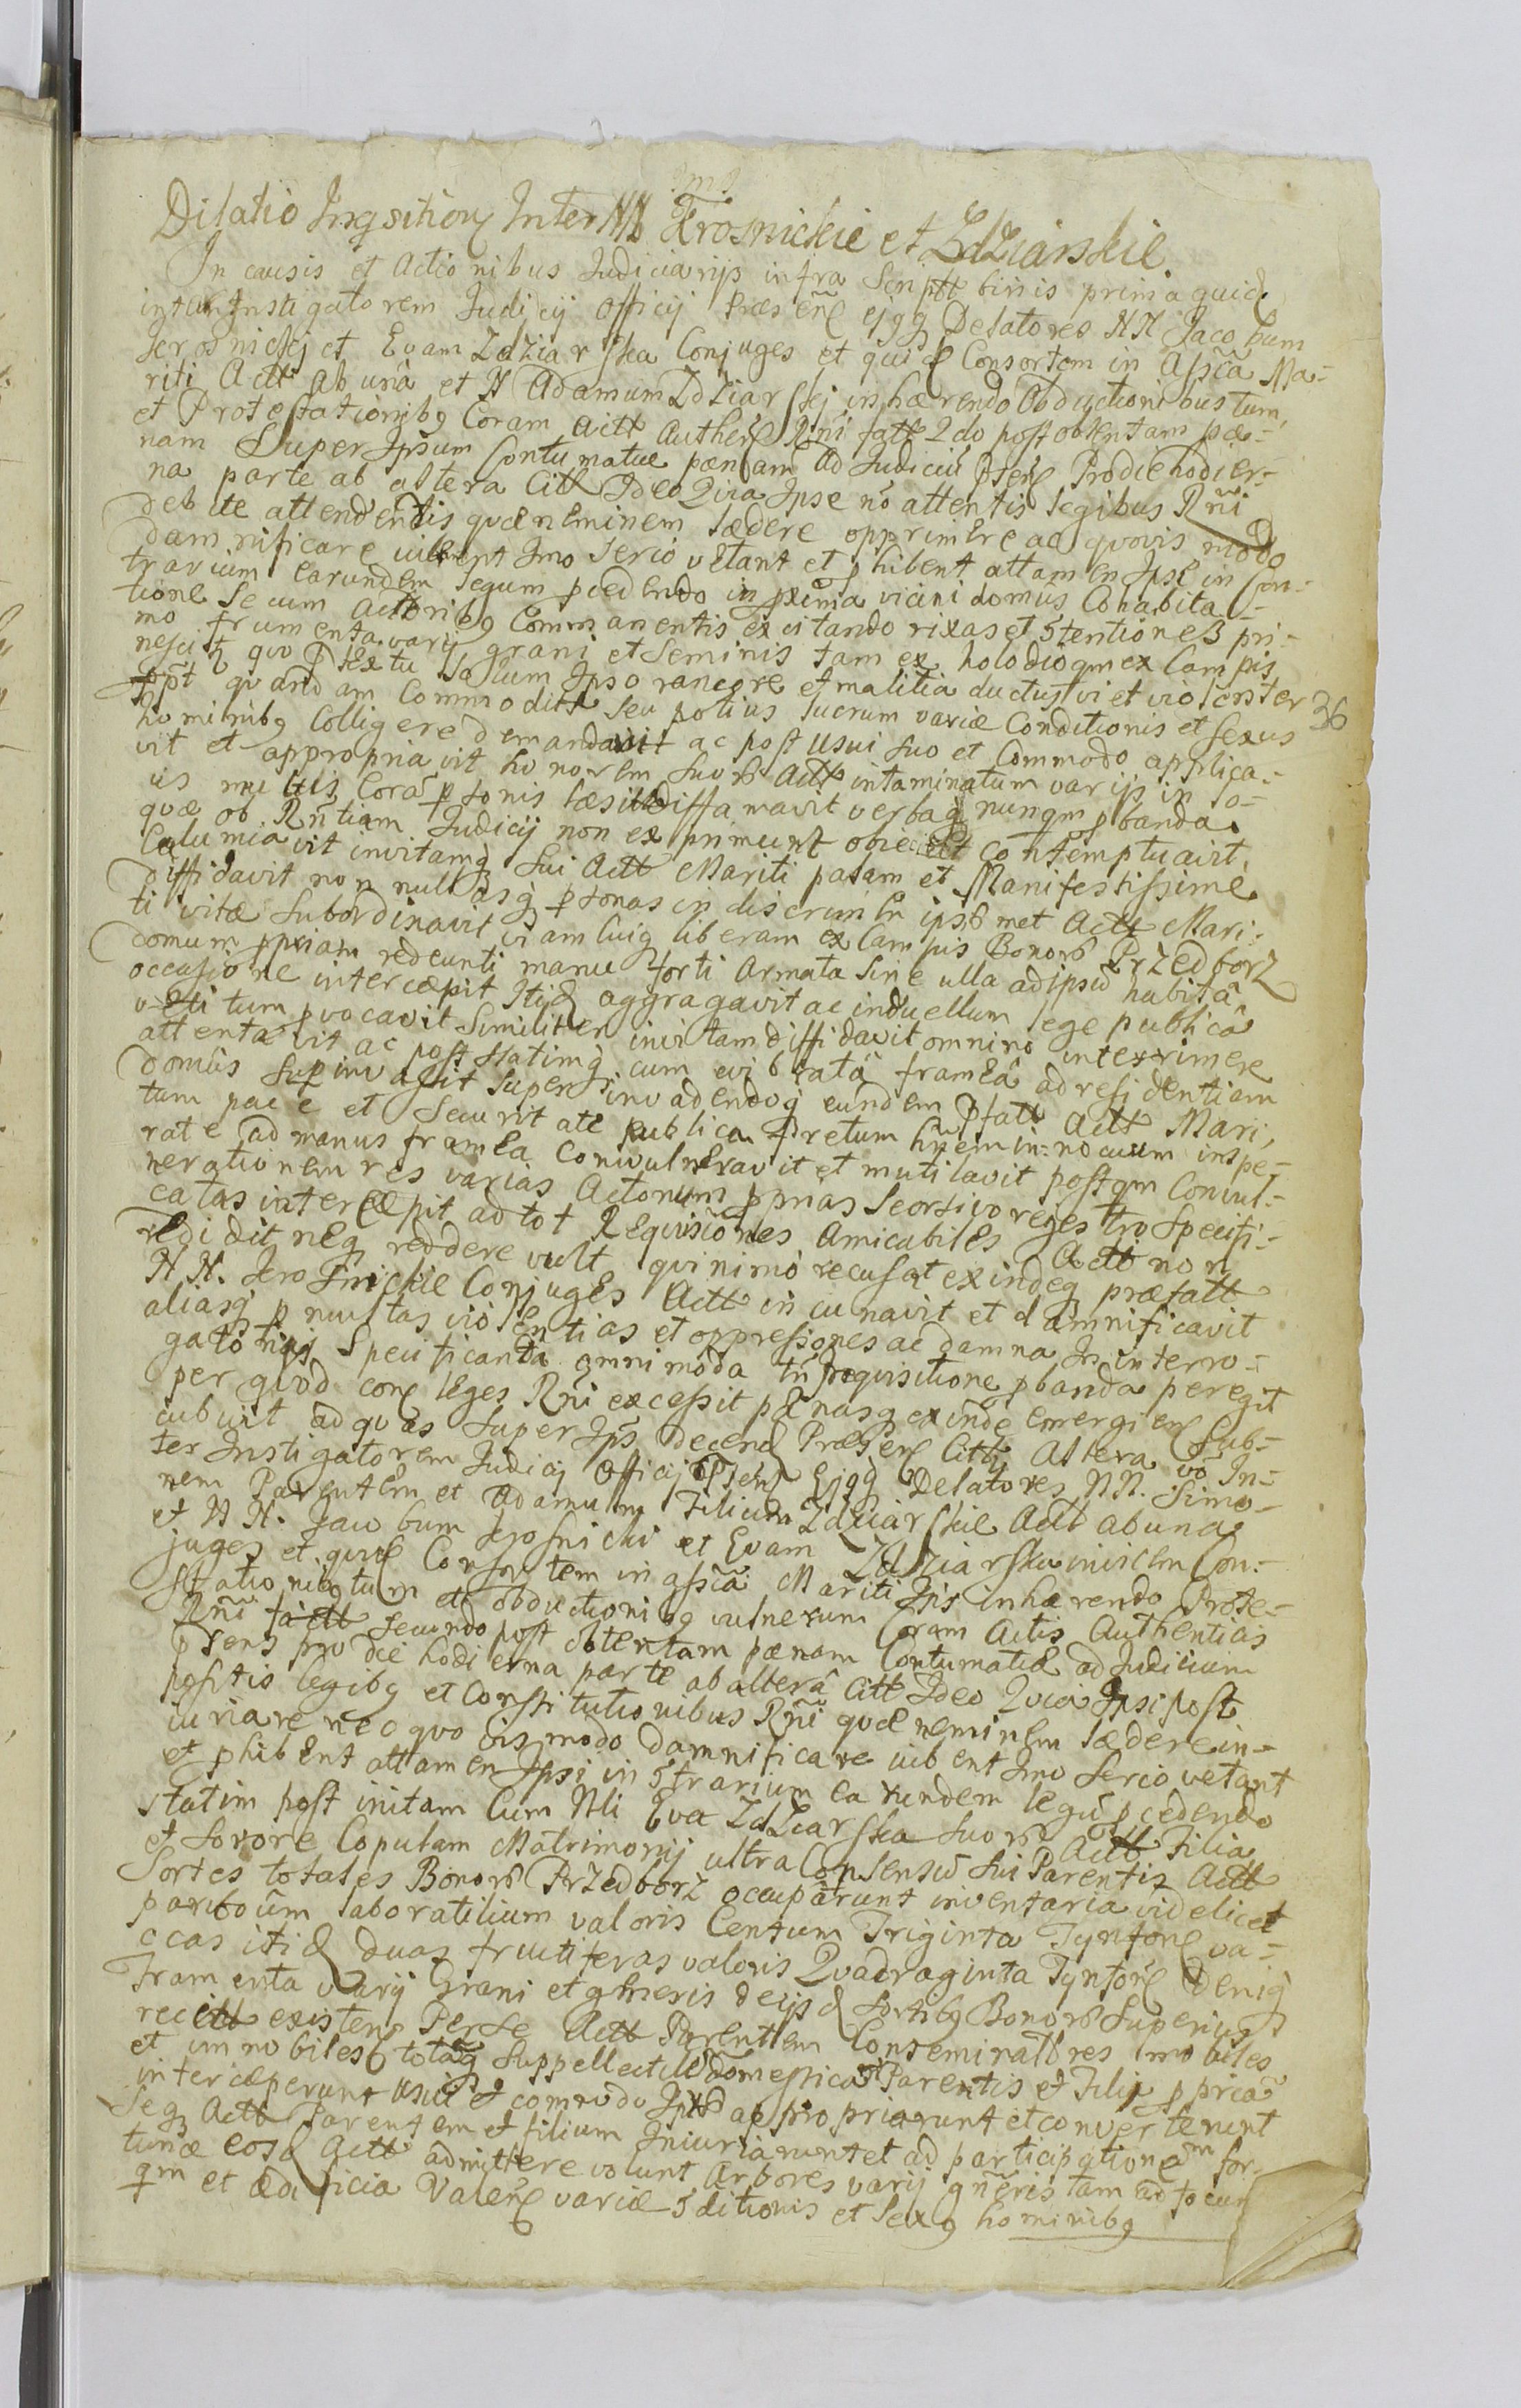 Dilatio Inqsitiony Inter NN Krosnickie et Zdziarskie.
In causis et Actionibus Judiciarijs infra Scriptt binis prima quid
inter Instigatorem Judicij Officij Præsen ejqq Delatores NN Jacobum
Krosnicki et Evam Zdziarska Conjuges et quid Consortem in Assca Ma-
riti Actt ab una et N Adamum Zdziarski inhærendo Obductionibus tum
et Protestationibq Coram actt Authen Rni fatt 2do post obtentam pæ-
nam Super Ipsum Contumatiæ pænam Ad Judiciu Psen Pro die hodier-
na parte ab altera Citt Ideo Quia Ipse no attentis legibus Rni
debite attendentis quæ neminem lædere opprimere ac quovis modo
damnificare iubent Imo Serio vetant et phibent attamen Ipse in Con-
trarium earundem legum pcedendo in pxima vicini domus Cohabita-
tione Secum Actoribq Commanentis excitando rixas et ōtentiones pri-
mo frumenta varij grani et Seminis tam ex holodio qm ex Campis
nescit quo Ptextu Solum Ipso rancore et malitia ductus vi et violenter
ppt quandam Commoditt Seu potius lucrum variæ Conditionis et Sexus
36
hominibq Colligere demandavit ac post usui Suo et Commodo applica-
vit et appropriavit honorem Suor Actt intaminatum varijs in lo-
cis multis Cora psonis læsit diffamavit verbaq nunqm pbanda
quæ ob Rntiam Judicij non exprimunt obiecit Contemptuavit
Calumiavit invitamq Sui Actt Mariti palam et Manifestissime
diffidavit non nullasq psonas in discrimen ipsomet Actt Mari-
ti vitæ Subordinavit viam Cuiq liberam ex Campis Bonor Przedborz
domum ppriam redeunti manu forti Armata Sine ulla ad ipsu habita
occasione intercæpit Itid aggragavit ac in duellum lege publica
vetitum pvocavit Similiter invitam diffidavit omnino interimere
attentavit ac post Statimq cum evibrata framea ad residentiam
domus Supinvasit Super invadendoq eundem Pfatt Actt Mari-
tum pace et Securitate publica fretum hnem in nocuum inspe-
rate ad manus framea Convulneravit et mutilavit postqm Convul-
nerationem res varias Actorum pprias Seorsivo regestro Specifi-
catas intercæpit ad tot Requisiones Amicabiles Actt non
reddidit neq reddere vult quinimo recusat exindeq præfatt
NN. Krosnickie Conjuges Actt in cunavit et damnificavit
aliasq pmultas violentias et oppressiones ac damna In interro-
gatorijs Specificanda omnimoda tn Inquisitione pbanda peregit
per quod con leges Rni excessit pænasq exinde emergien Sub-
cubuit ad quas Super Ips decend Præsen Citt Altera vo In-
ter Instigatorem Judicij Officij Psen Ejqq Delatores NN. Simo-
nem Parentem et Adamum Filium Zdziarskie Actt ab una
et NN. Jacobum Krosnicki et Evam Zdziarska invicem Con-
juges et quid Consortem in assca Mariti Ipsis inhærendo Prote-
stationibq tum et obductionibq vulnerum Coram Actis Authenticis
Rni fatt Secundo post obtentam pænam Contumatiæ ad Judicium
Psens pro die hodierna parte ab altera Citt Ideo Quia Ipsi post
positis legibq et Constitutionibus Rni quæ neminem lædere in-
iuriare nec quovis modo damnificare iubent Imo Serio vetant
et phibent attamen Ipsi in ōtrarium earundem legu pcedendo
Statim post initam Cum Nli Eva Zdziarska Suor Actt Filia
et Sorore Copulam Matrimonij ultra Consensu Sui Parentis Actt
Sortes totales Bonor Przedborz occuparunt inventaria videlicet
par boum laboratilium valoris Centum Triginta Tynfon va-
ccas itid duas fructiferas valoris Quadraginta Tynfon Deniq
Framenta varij Grani et gneris deijsd Sortibq Bonor Superius
recitt existen Per Se Actt Parentem Conseminatt res mobiles
et immobiles totaq Suppellectile domestica Parentis et Filij ppria
intercæperunt usui et comodo Ipso appropriarunt et converterunt
Seq Actt Parentem et filium Iniuriarunt et ad participatione for-
tunæ eosd Actt admittere volunt Arbores varij gneris tam ad focum
qm et ædificia Valen variæ ōditionis et Sexq hominibq